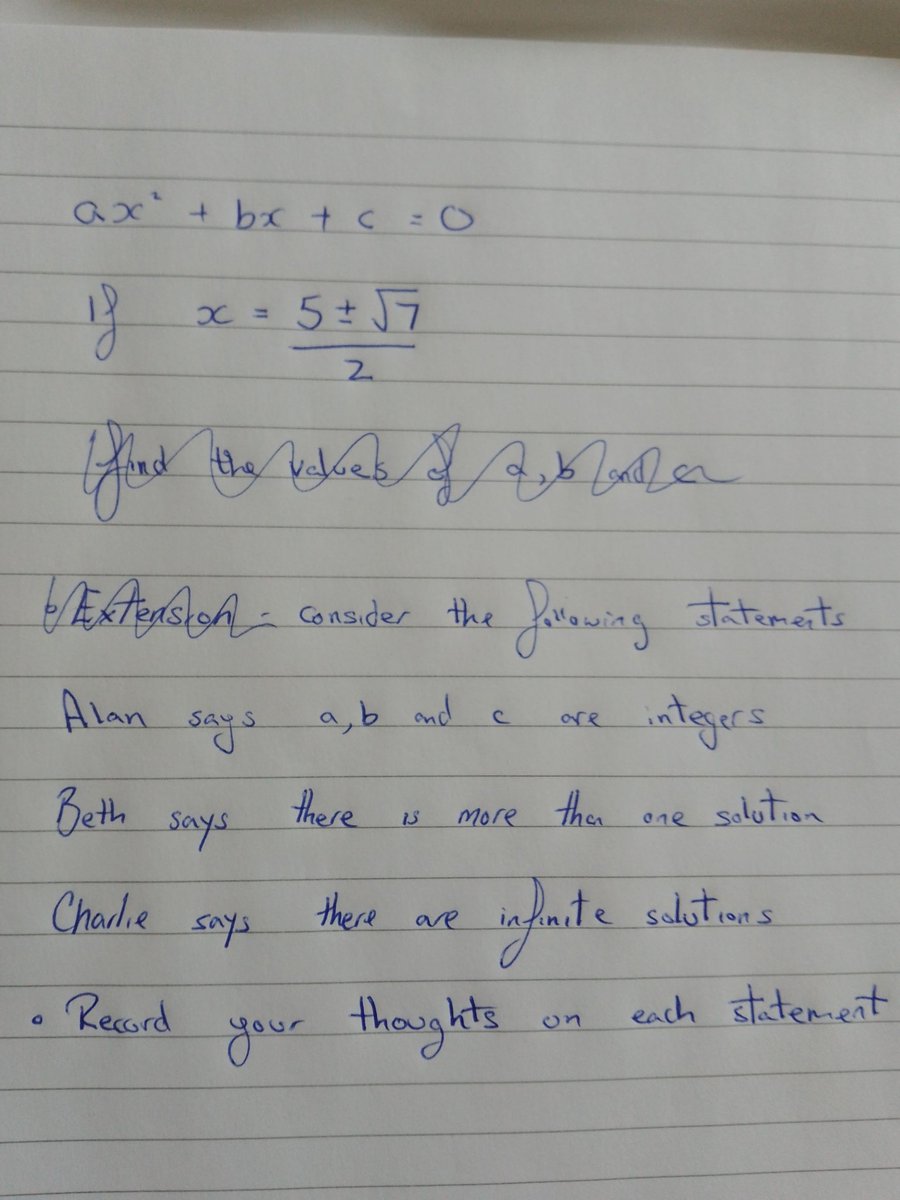 ax² + bx + c = 0
If x = 5 ± √7 / 2
find the values of a, b and c
b) Extension - consider the following statements
Alan says a, b and c are integers
Beth says there is more than one solution
Charlie says there are infinite solutions
• Record your thoughts on each statement